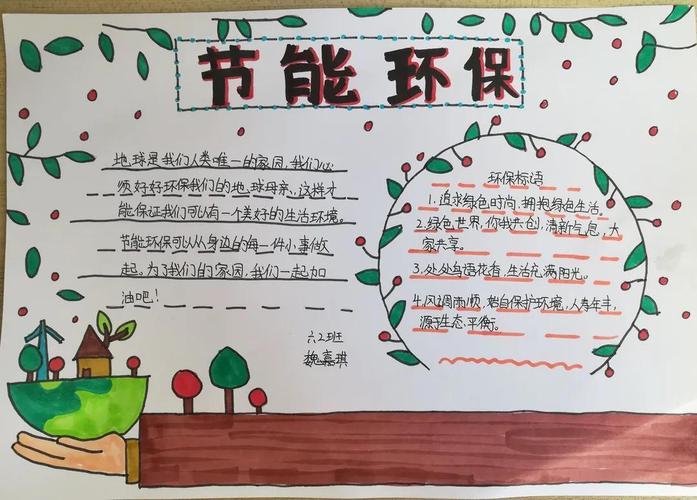 节能环保
地球是我们人类唯一的家园,我们必
须好好环保我们的地球母亲,这样才
能保证我们可以有一个美好的生活环境。
节能环保可以从身边的每一件小事做
起。为了我们的家园,我们一起加
油吧!
六2班
魏嘉琪
环保标语
1.追求绿色时尚,拥抱绿色生活。
2.绿色世界,你我共创,清新气息,大
家共享。
3.处处鸟语花香,生活充满阳光。
4.风调雨顺,始自保护环境,人寿年丰,
源于生态平衡。